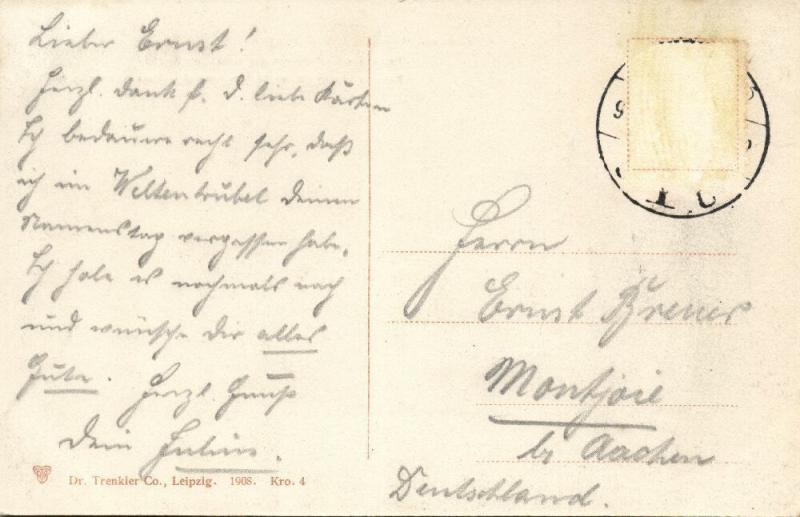 Lieber Ernst!
Herzl. Dank f. d. liebe Karten
Ich bedaure recht sehr, daß
ich im Weltentrubel deinen
Namenstag vergessen habe.
Ich hole es nochmals nach
und wünsche Dir alles
Gute. Herzl. Gruß
Dein Julius.
Dr. Trenkler Co., Leipzig. 1908. Kro. 4
Herrn
Ernst Breuer
Montjoie
bei Aachen
Deutschland.